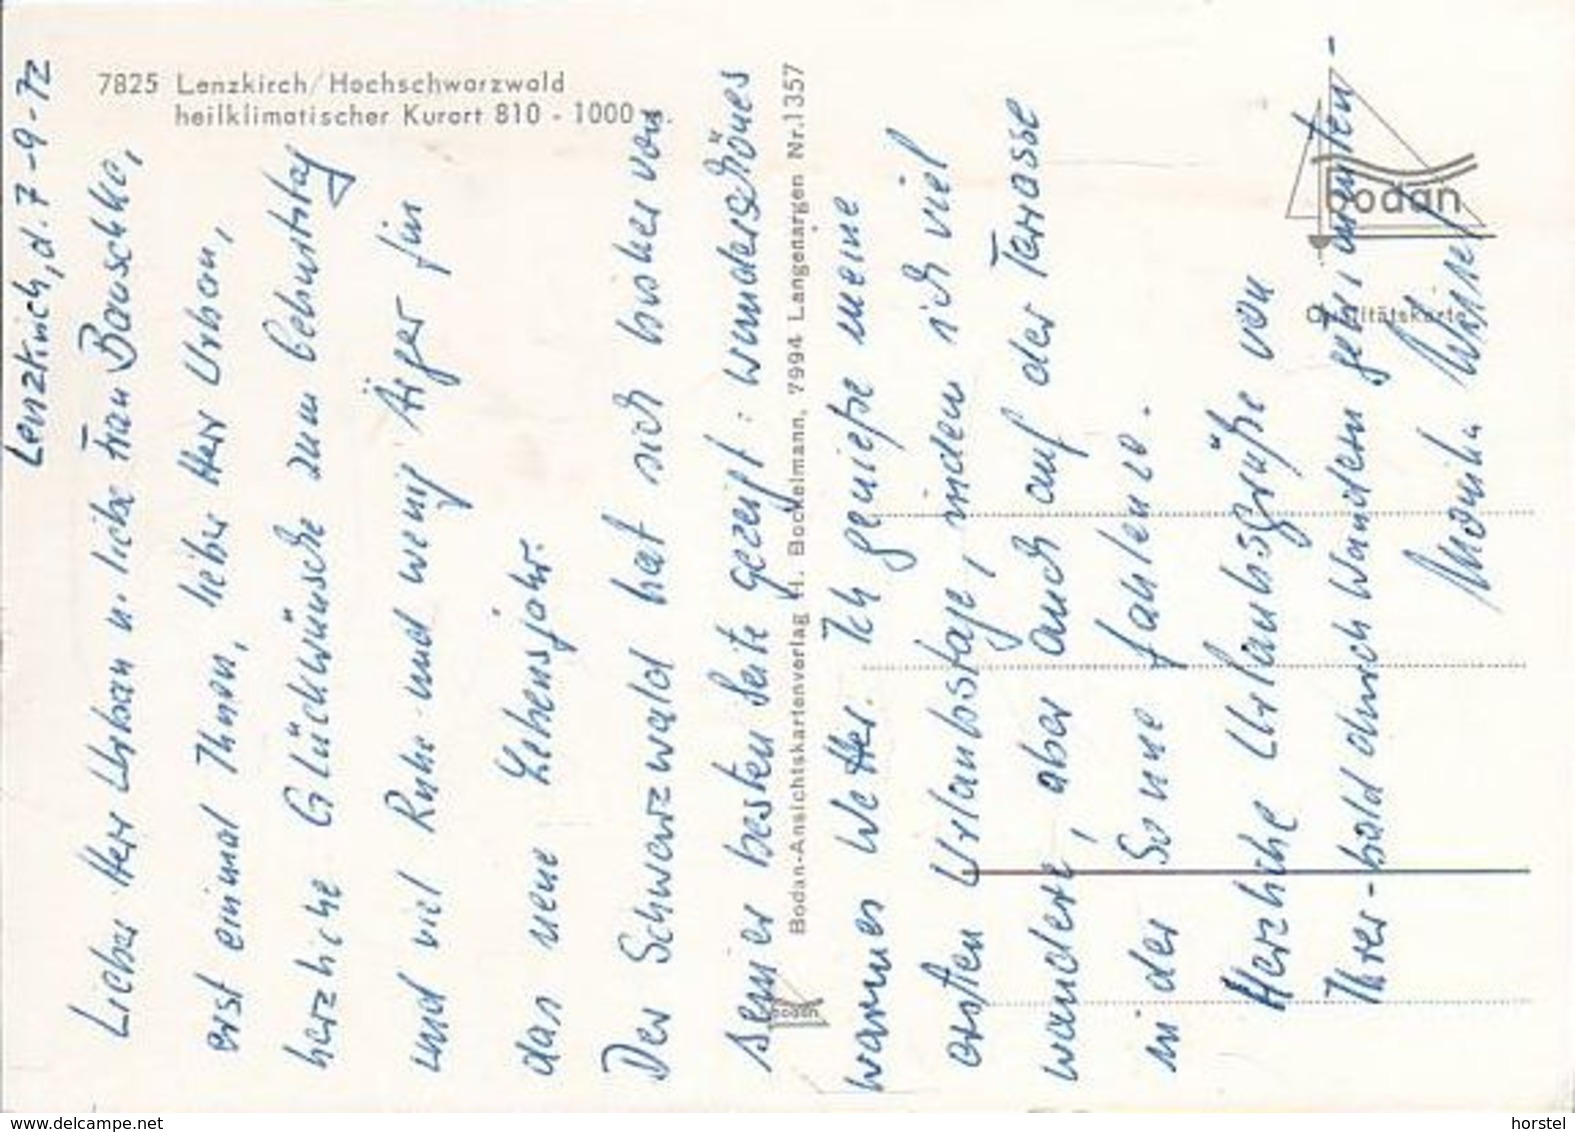 7825 Lenzkirch/Hochschwarzwald
heilklimatischer Kurort 810 - 1000 m.
Lenzkirch, d. 7-9-72
Lieber Herr Urban u. liebe Frau Bauschke,
erst einmal Ihnen, lieber Herr Urban,
herzliche Glückwünsche zum Geburtstag
und viel Ruhe und wenig Ärger für
das neue Lebensjahr.
Der Schwarzwald hat sich bisher von
seiner besten Seite gezeigt: wunderschönes
warmes Wetter. Ich genieße meine
ersten Urlaubstage, indem ich viel
wandere, aber auch auf der Terrasse
in der Sonne fahlenze.
Herzliche Urlaubsgrüße von
Ihrer - bald durch Wandern geübten -
Monika
Bodan-Ansichtskartenverlag H. Bockelmann, 7994 Langenargen Nr.1357
bodan
bodan
Qualitätskarte
www.delcampe.net
horstel